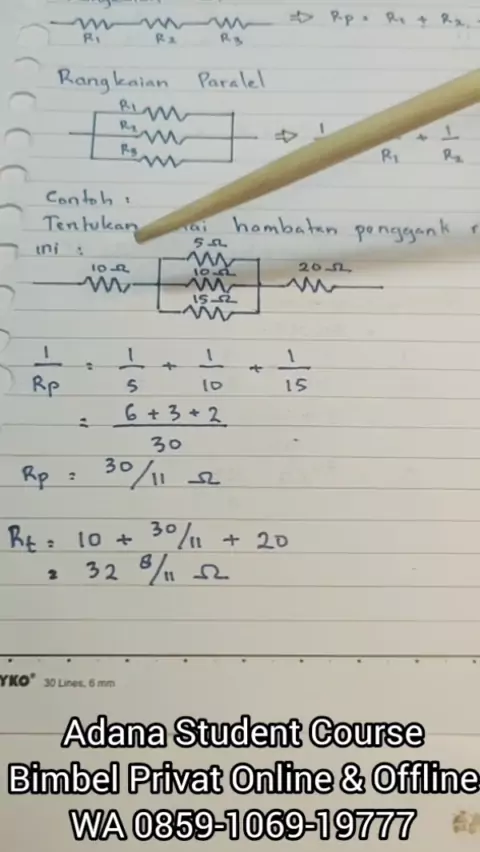 ⇒ Rp = R₁ + R₂
R₁ R₂ R₃
Rangkaian Paralel
R₁
R₂
R₃
⇒ 1 + 1
R₁ R₂
Contoh :
Tentukan hambatan penggank
ini :
5 Ω
10 Ω 10 Ω 20 Ω
15 Ω
1/Rp = 1/5 + 1/10 + 1/15
= 6 + 3 + 2 / 30
Rp = 30/11 Ω
Rt = 10 + 30/11 + 20
= 32 8/11 Ω
YKO® 30 Lines, 6 mm
Adana Student Course
Bimbel Privat Online & Offline
WA 0859-1069-19777